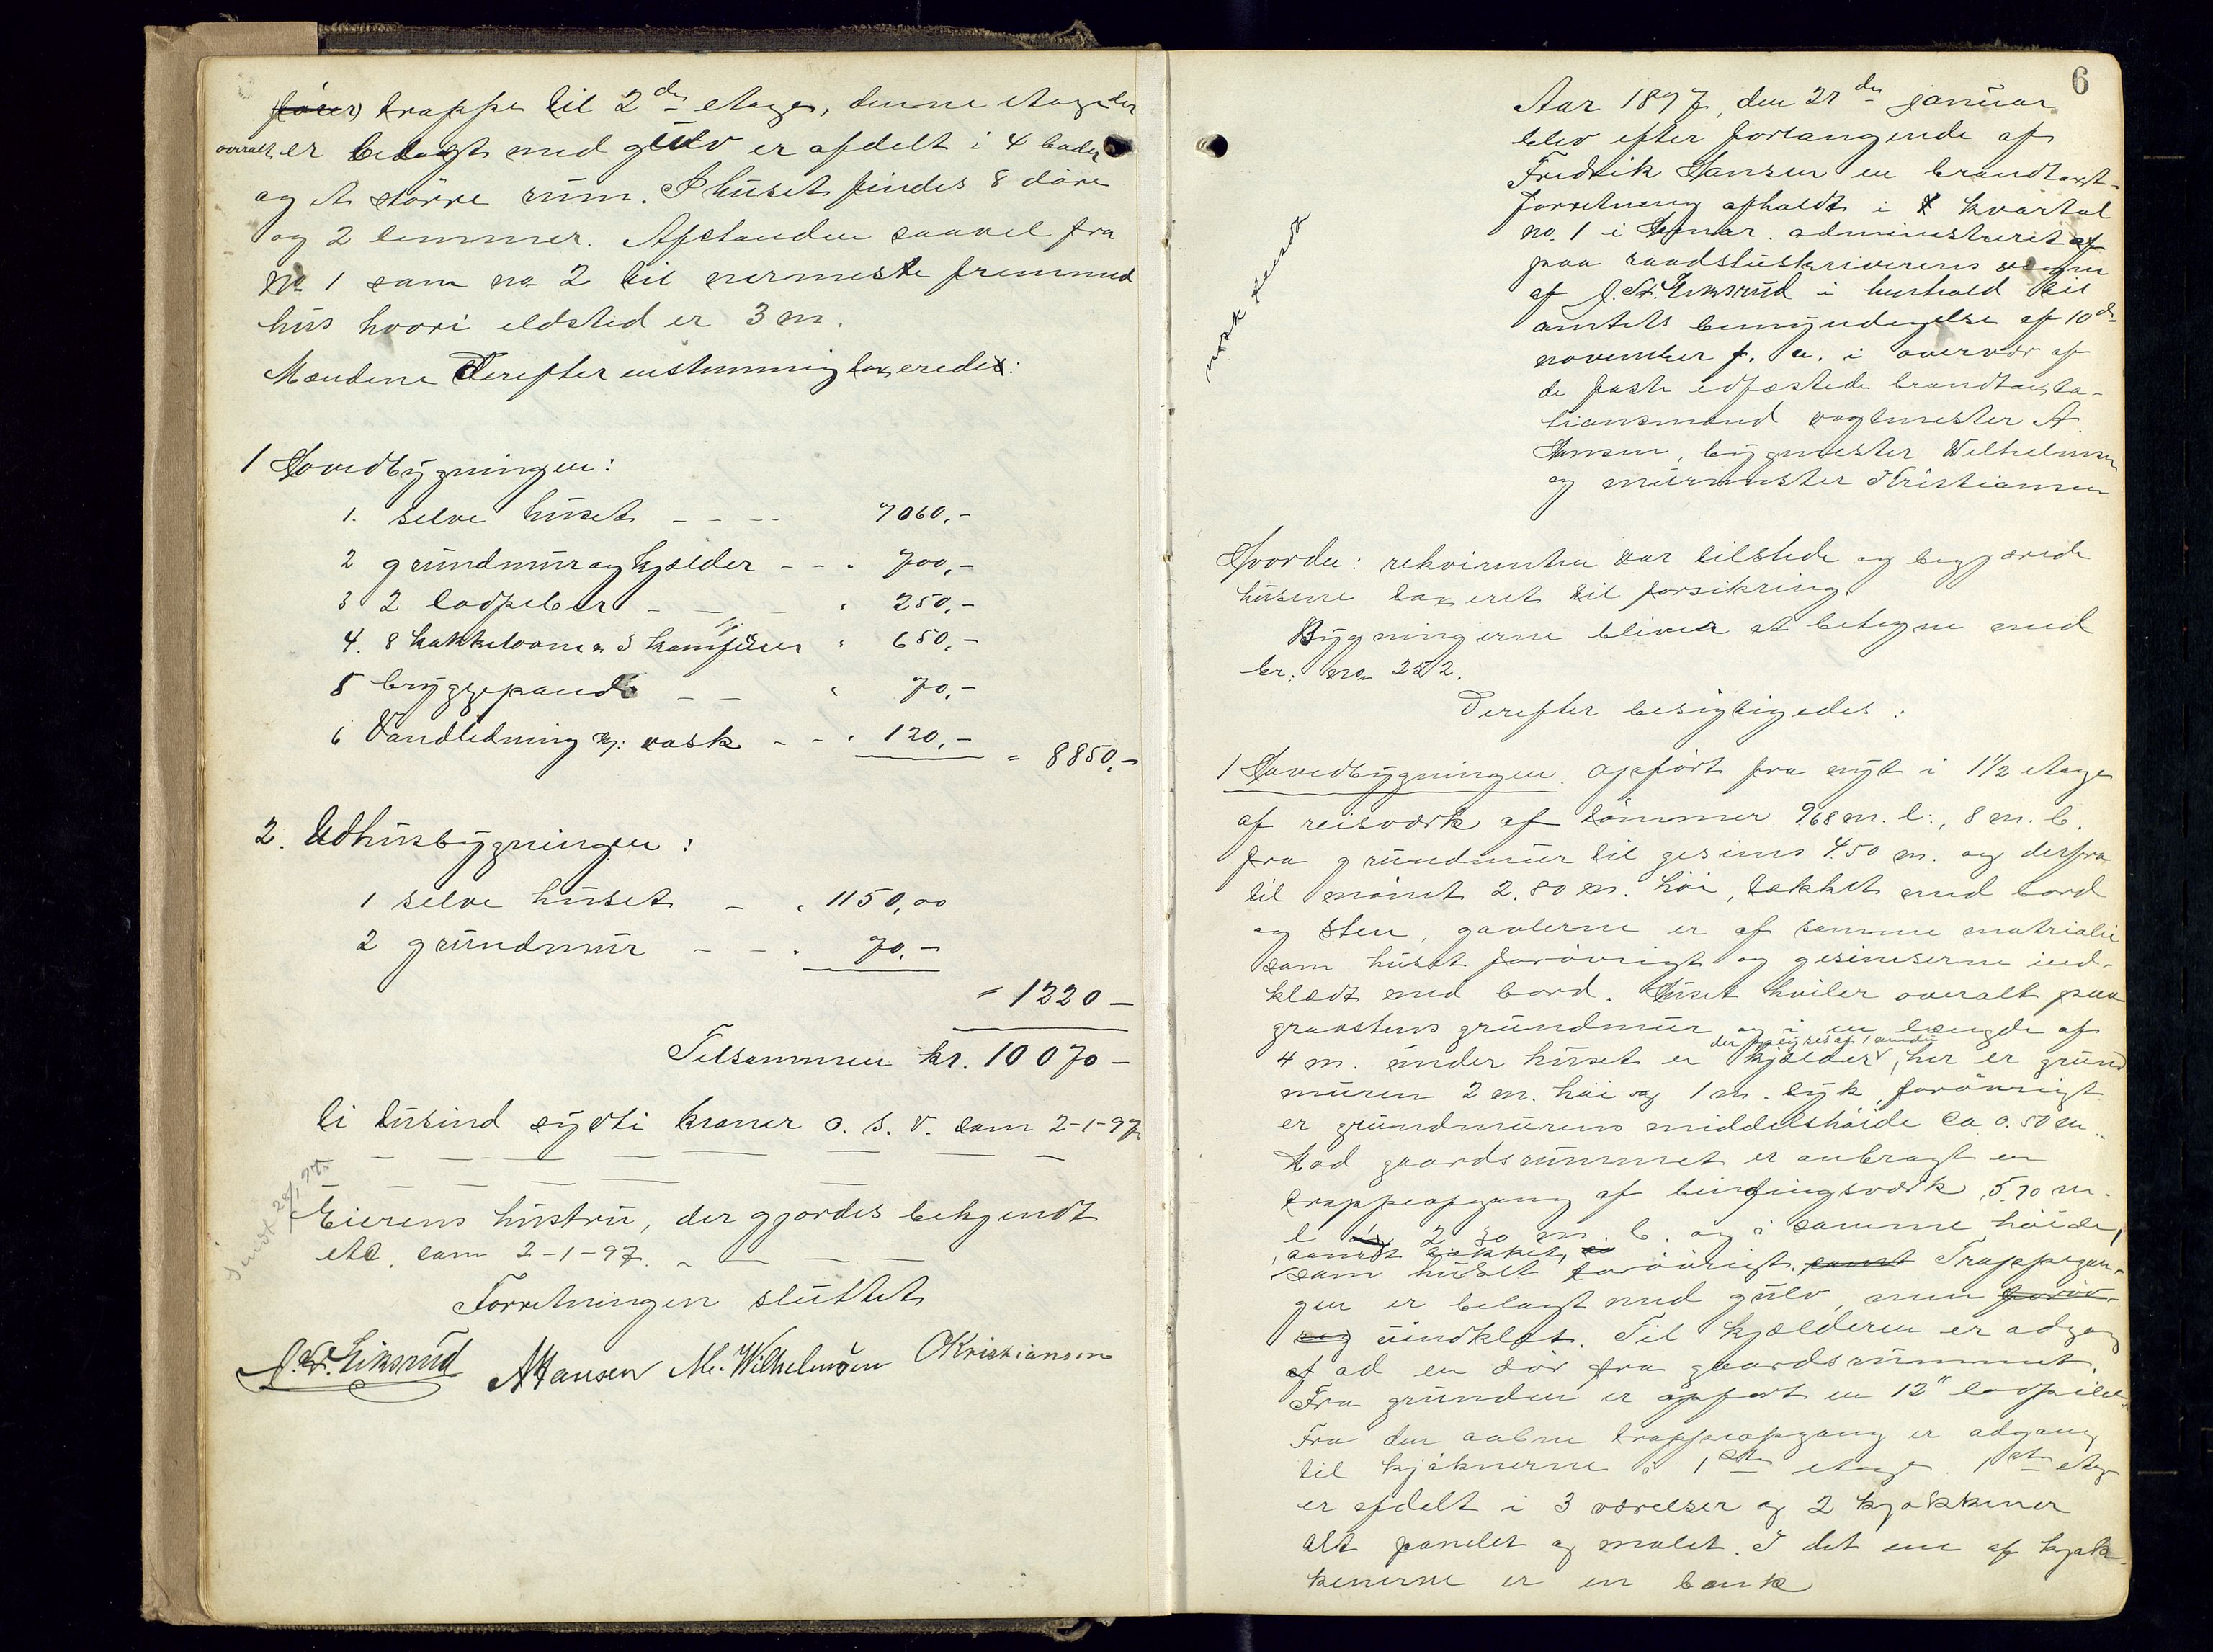 fører trappe til 2den etage, denne etage der
overalt er belagt med gulv er afdelt i 4 boder
og et større rum. I huset findes 8 døre
og 2 lemmer. Afstanden saavel fra
no 1 som no 2 til nermeste fremmed
hus hvori ildsted er 3 m.
Mændene derefter enstemmig taxerede:
1 Hovedbygningen:
1. selve huset - - - 7060,-
2 grundmur og kjelder - - " 700,-
3 2 lodpiber - - - " 250,-
4. 8 kakkelovne og 3 komfurer " 650,-
5 bryggepande - - " 70,-
6 Vandledning og vask - - " 120,- = 8850,-
2. Udhusbygningen:
1 selve huset - " 1150,00
2 grundmur - - " 70,-
= 1220 -
Tilsammen kr. 10070 -
ti tusind sytti kroner o. s. v. som 2-1-97
Sendt 28/1 97.
Eierens hustru, der gjordes bekjendt
etc. som 2-1-97. - - -
Forretningen sluttet
J. Fr. Eiksrud A Hansen Me. Wilhelmsen O Kristiansen
6
Aar 1897, den 21de januar
blev efter forlangende af
Fredrik Hansen en brandtaxt-
forretning afholdt i X kvartal
no. 1 i Hamar. administreret af
paa raadstuskriverens vegne
af J. Fr. Eiksrud i henhold til
amtets bemyndigelse af 10de
november f. a. i overvær af
de faste edfæstede brandtaxta-
tionsmænd vagtmester A.
Hansen, bygmester Wilhelmsen
og murmester Kristiansen
Hvorda: rekvirenten var tilstede og begjærede
husene taxeret til forsikring.
Bygningerne bliver at betegne med
br. no 252.
Derefter besigtigedes:
1 Hovedbygningen. opført fra nyt i 1 1/2 etage
af reisverk af tømmer 968 m. l., 8 m. b.
fra grundmur til gesims 4.50 m. og derfra
til mønet 2.80 m. høi, tækket med bord
og sten, gavlerne er af samme matriale
som huset forøvrigt og gesimserne ind-
klædt med bord. Huset hviler overalt paa
graastens grundmur og i en længde af
4 m. under huset er kjelder, her er grund
muren 2 m. høi og 1 m. tyk, forøvrigt
er grundmurens middelshøide ca 0.50 m.
Mod gaardsrummet er anbragt en
trappeopgang af bindingsverk, 5.70 m.
l og 2 30 m. b. og i samme høide,
samt tækket
som huset forøvrigt. samt Trappegan-
gen er belagt med gulv, men forøv-
rig uindklæt. Til kjelderen er adgang
af ad en dør fra gaardsrummet.
Fra grunden er opført en 12" lodpibe.
Fra den aabne trappeopgang er adgang
til kjøknerne i 1ste etage. 1ste etage
er afdelt i 3 værelser og 2 kjøkkener
alt panelet og malet. I det ene af kjøk-
kenerne er en bænk